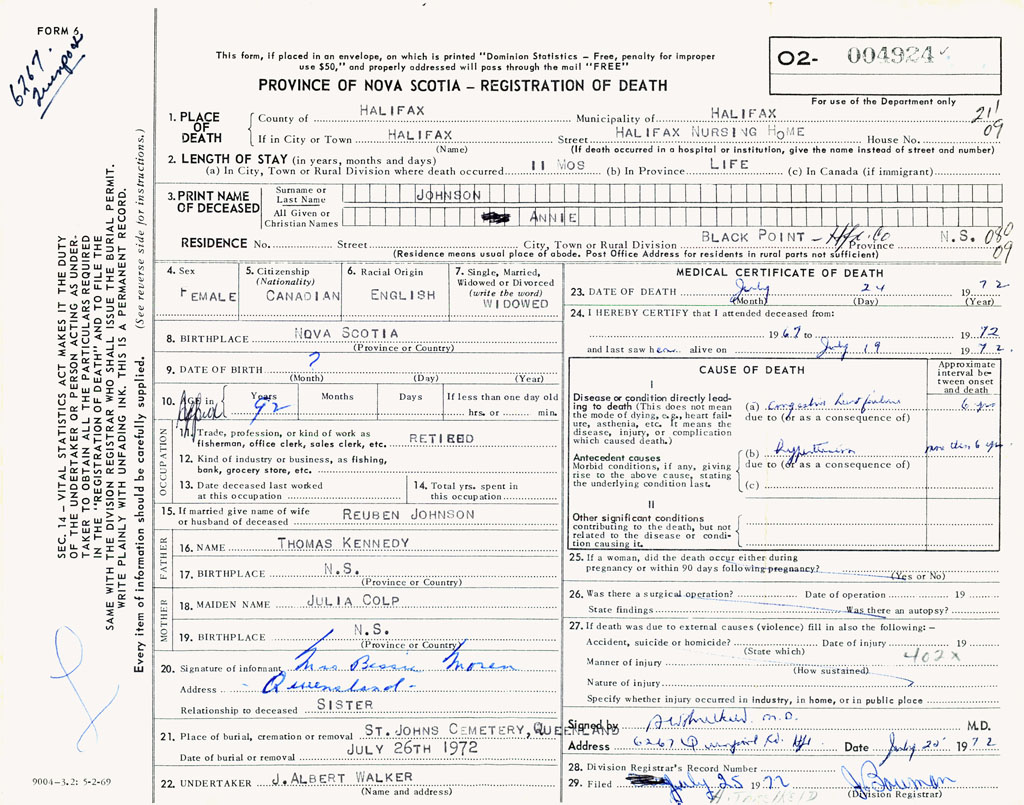 FORM 6
6267
This form, if placed in an envelope, on which is printed "Dominion Statistics – Free, penalty for improper
use $50," and properly addressed will pass through the mail "FREE"
PROVINCE OF NOVA SCOTIA – REGISTRATION OF DEATH
02- 004924
For use of the Department only
1. PLACE OF DEATH
County of HALIFAX Municipality of HALIFAX 21
If in City or Town HALIFAX Street HALIFAX NURSING HOME House No. 09
(Name) (If death occurred in a hospital or institution, give the name instead of street and number)
2. LENGTH OF STAY (in years, months and days)
(a) In City, Town or Rural Division where death occurred 11 MOS (b) In Province LIFE (c) In Canada (if immigrant)
3. PRINT NAME OF DECEASED
Surname or Last Name JOHNSON
All Given or Christian Names ANNIE
RESIDENCE No. Street City, Town or Rural Division BLACK POINT – Hfx. Co Province N.S. 080
(Residence means usual place of abode. Post Office Address for residents in rural parts not sufficient) 09
SEC. 14 – VITAL STATISTICS ACT MAKES IT THE DUTY
OF THE UNDERTAKER OR PERSON ACTING AS UNDER-
TAKER TO OBTAIN ALL THE PARTICULARS REQUIRED
IN THE "REGISTRATION OF DEATH" AND TO FILE THE
SAME WITH THE DIVISION REGISTRAR WHO SHALL ISSUE THE BURIAL PERMIT.
WRITE PLAINLY WITH UNFADING INK. THIS IS A PERMANENT RECORD.
Every item of information should be carefully supplied. (See reverse side for instructions.)
4. Sex FEMALE
5. Citizenship (Nationality) CANADIAN
6. Racial Origin ENGLISH
7. Single, Married, Widowed or Divorced (write the word) WIDOWED
8. BIRTHPLACE NOVA SCOTIA
(Province or Country)
9. DATE OF BIRTH ?
(Month) (Day) (Year)
10. AGE in Years Months Days If less than one day old
92 hrs. or min.
OCCUPATION
11. Trade, profession, or kind of work as
fisherman, office clerk, sales clerk, etc. RETIRED
12. Kind of industry or business, as fishing,
bank, grocery store, etc.
13. Date deceased last worked
at this occupation
14. Total yrs. spent in
this occupation
15. If married give name of wife
or husband of deceased REUBEN JOHNSON
FATHER
16. NAME THOMAS KENNEDY
17. BIRTHPLACE N.S.
(Province or Country)
MOTHER
18. MAIDEN NAME JULIA COLP
19. BIRTHPLACE N.S.
(Province or Country)
20. Signature of informant Mrs Bessie Moren
Address - Queensland -
Relationship to deceased SISTER
21. Place of burial, cremation or removal ST. JOHNS CEMETERY, QUEENLAND
JULY 26TH 1972
Date of burial or removal
22. UNDERTAKER J. ALBERT WALKER
(Name and address)
9004–3.2: 5-2-69
MEDICAL CERTIFICATE OF DEATH
23. DATE OF DEATH July 24 1972
(Month) (Day) (Year)
24. I HEREBY CERTIFY that I attended deceased from:
1967 to 1972
and last saw her alive on July 19 1972
CAUSE OF DEATH
Approximate interval between onset and death
I
Disease or condition directly lead-
ing to death (This does not mean
the mode of dying, e.g., heart fail-
ure, asthenia, etc. It means the
disease, injury, or complication
which caused death.)
(a) Congestive heart failure 6 yrs
due to (or as a consequence of)
Antecedent causes
Morbid conditions, if any, giving
rise to the above cause, stating
the underlying condition last.
(b) hypertension more than 6 yrs
due to (or as a consequence of)
(c)
II
Other significant conditions
contributing to the death, but not
related to the disease or condi-
tion causing it.
25. If a woman, did the death occur either during
pregnancy or within 90 days following pregnancy?
(Yes or No)
26. Was there a surgical operation? Date of operation 19
State findings Was there an autopsy?
27. If death was due to external causes (violence) fill in also the following: –
Accident, suicide or homicide? Date of injury 19
(State which) 402X
Manner of injury
(How sustained)
Nature of injury
Specify whether injury occurred in industry, in home, or in public place
Signed by M.D. M.D.
Address 6267 Rd. Hfx Date July 25 1972
28. Division Registrar's Record Number
29. Filed July 25 1972 J Bowman
(Division Registrar)